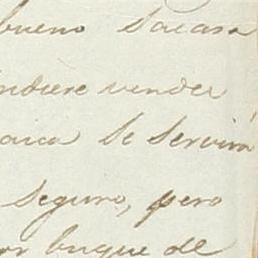 bueno sacara
indiere vender
oaica se servirá
seguro, pero
or buque de